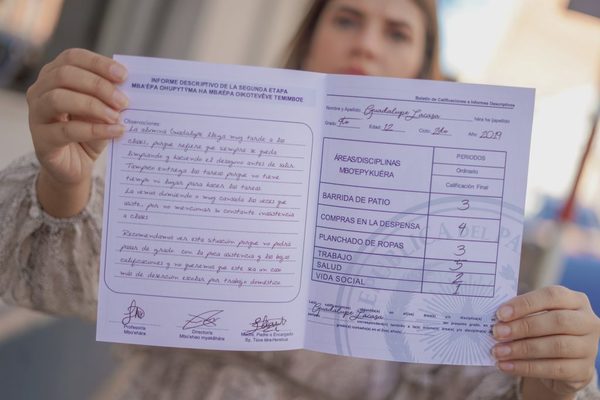 INFORME DESCRIPTIVO DE LA SEGUNDA ETAPA
MBA'ÉPA OHUPYTÝMA HA MBAÉPA OIKOTEVÊVE TEMIMBOE
Observaciones:
La alumna Guadalupe llega muy tarde a las
clases, porque refiere que siempre se queda
limpiando y haciendo el desayuno antes de salir.
Tampoco entrega las tareas porque no tiene
tiempo ni lugar para hacer las tareas.
La vemos durmiendo o muy cansada las veces que
asiste, por no mencionar la constante inasistencia
a clases
Recomendamos ver esta situación porque no podrá
pasar de grado con la poca asistencia y las bajas
calificaciones y no queremos que este sea un caso
más de deserción escolar por trabajo doméstico.
Profesor/a
Mbo'ehára
Director/a
Mbo'ehao myakãhára
Madre, Padre o Encargado
Sy, Túva
Boletín de Calificaciones e Informes Descriptivos
Nombre y Apellido Guadalupe Lacasa
Grado 4to Edad 12 Ciclo 2do Año 2019
ÁREAS/DISCIPLINAS
MBO'EPYKUÉRA
PERIODOS
Ordinario
Calificación Final
BARRIDA DE PATIO 3
COMPRAS EN LA DESPENSA 4
PLANCHADO DE ROPAS 3
TRABAJO 5
SALUD 2
VIDA SOCIAL 1
Guadalupe Lacasa
REPÚBLICA DEL